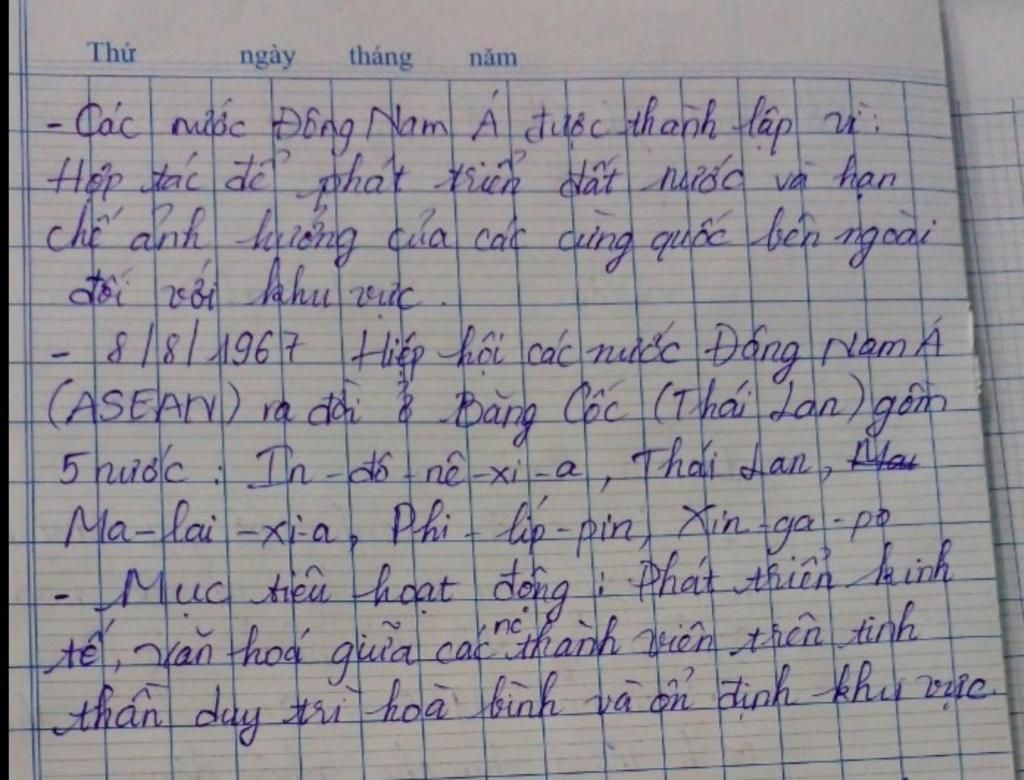 Thứ ngày tháng năm
- Các nước Đông Nam Á được thành lập vì:
Hợp tác để phát triển đất nước và hạn
chế ảnh hưởng của các cường quốc bên ngoài
đối với khu vực.
- 8/8/1967 Hiệp hội các nước Đông Nam Á
(ASEAN) ra đời ở Băng Cốc (Thái Lan) gồm
5 nước: In-đô-nê-xi-a, Thái Lan,
Ma-lai-xi-a, Phi-líp-pin, Xin-ga-po
- Mục tiêu hoạt động: Phát triển kinh
tế, văn hoá giữa các nc thành viên trên tinh
thần duy trì hoà bình và ổn định khu vực.